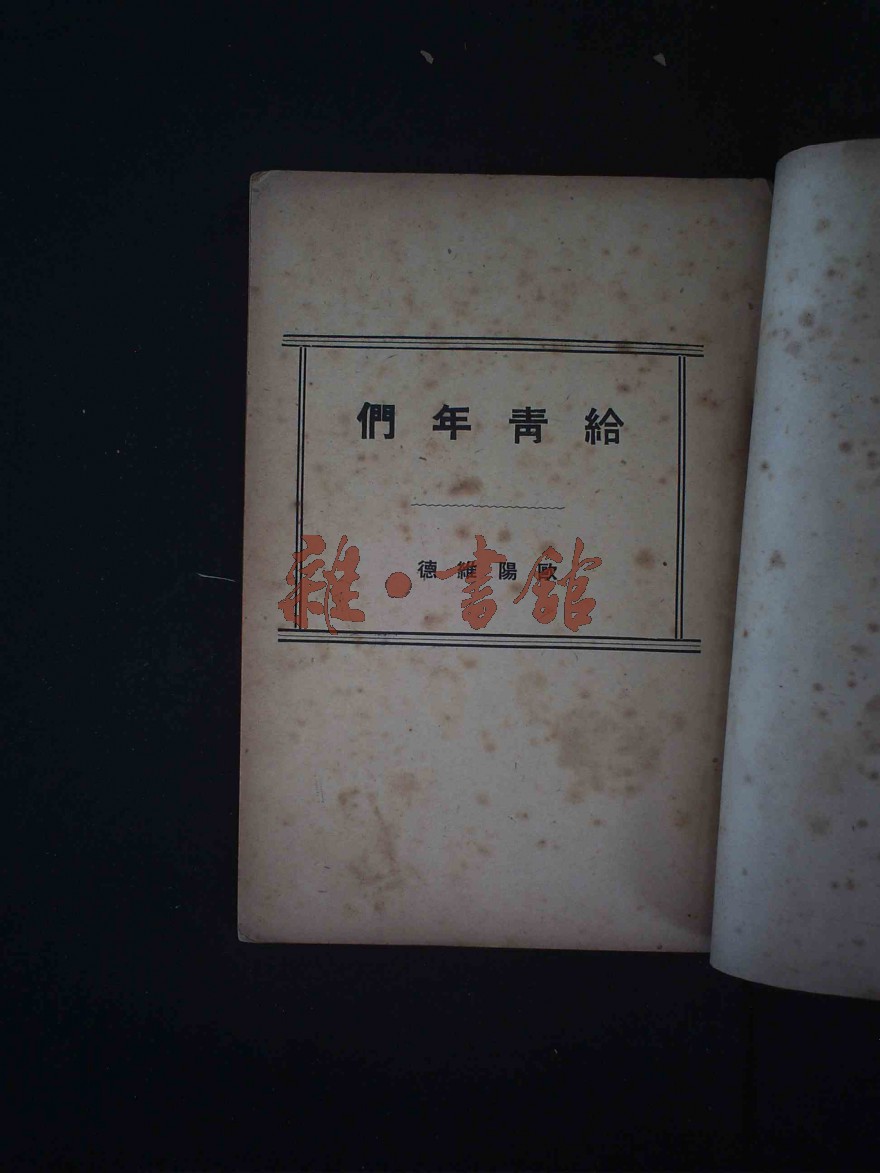 給青年們
歐陽維德
雜·書館